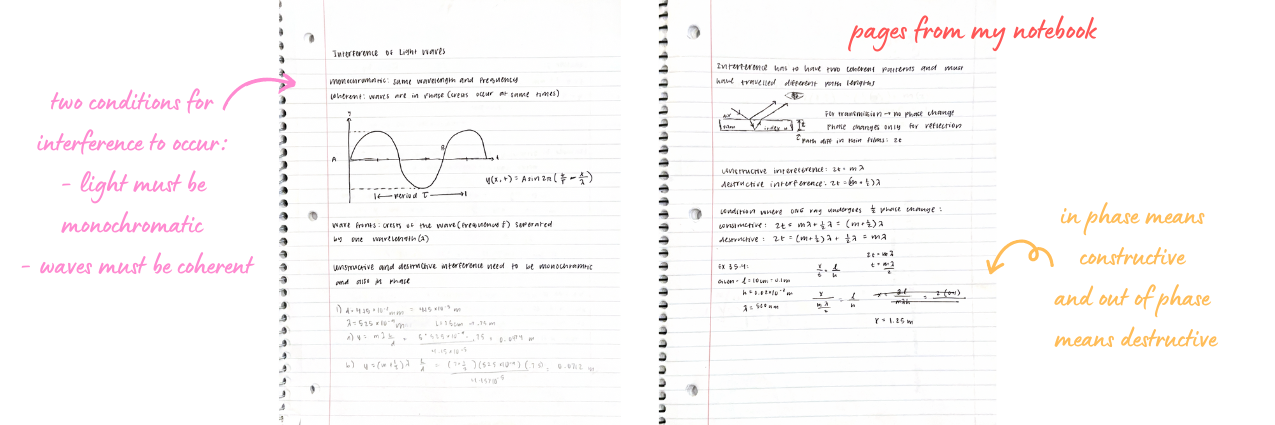 pages from my notebook
two conditions for
interference to occur:
- light must be
monochromatic
- waves must be coherent
Interference of Light Waves
monochromatic: same wavelength and frequency
coherent: waves are in phase (crests occur at same times)
y
A
B
t
y(x,t) = A sin 2π (t/T - x/λ)
period T
wave fronts: crests of the wave (frequence f) seperated
by one wavelength (λ)
constructive and destructive interference need to be monochromatic
and also in phase
Interference has to have two coherent patterns and must
have travelled different path lengths
air
film
index n
t
For transmission → no phase change
Phase changes only for reflection
Path diff in thin films: 2t
constructive interference: 2t = mλ
destructive interference: 2t = (m + ½)λ
condition where ONE ray undergoes ½ phase change:
constructive: 2t = mλ + ½λ = (m+½)λ
destructive: 2t = (m+½)λ + ½λ = mλ
Ex 35.4:
given - l = 10cm = 0.1m
λ = 500nm
x/t = l/h
2t = mλ
t = mλ/2
in phase means
constructive
and out of phase
means destructive